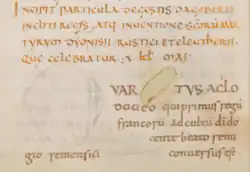 INCIPIT PARTICULA DE GESTIS DAGOBERTI
INCLITI REGIS, ATQ; INUENTIONE SCORUM MAR
TYRUM DIONYSII RUSTICI ET ELEUTHERII.
QUE CELEBRATUR · X · kl MAI
VAR TUS A CLO
DOUEO qui primus regū
francorū ad cultū di do
cente beato remi
gio remensi conuersus est